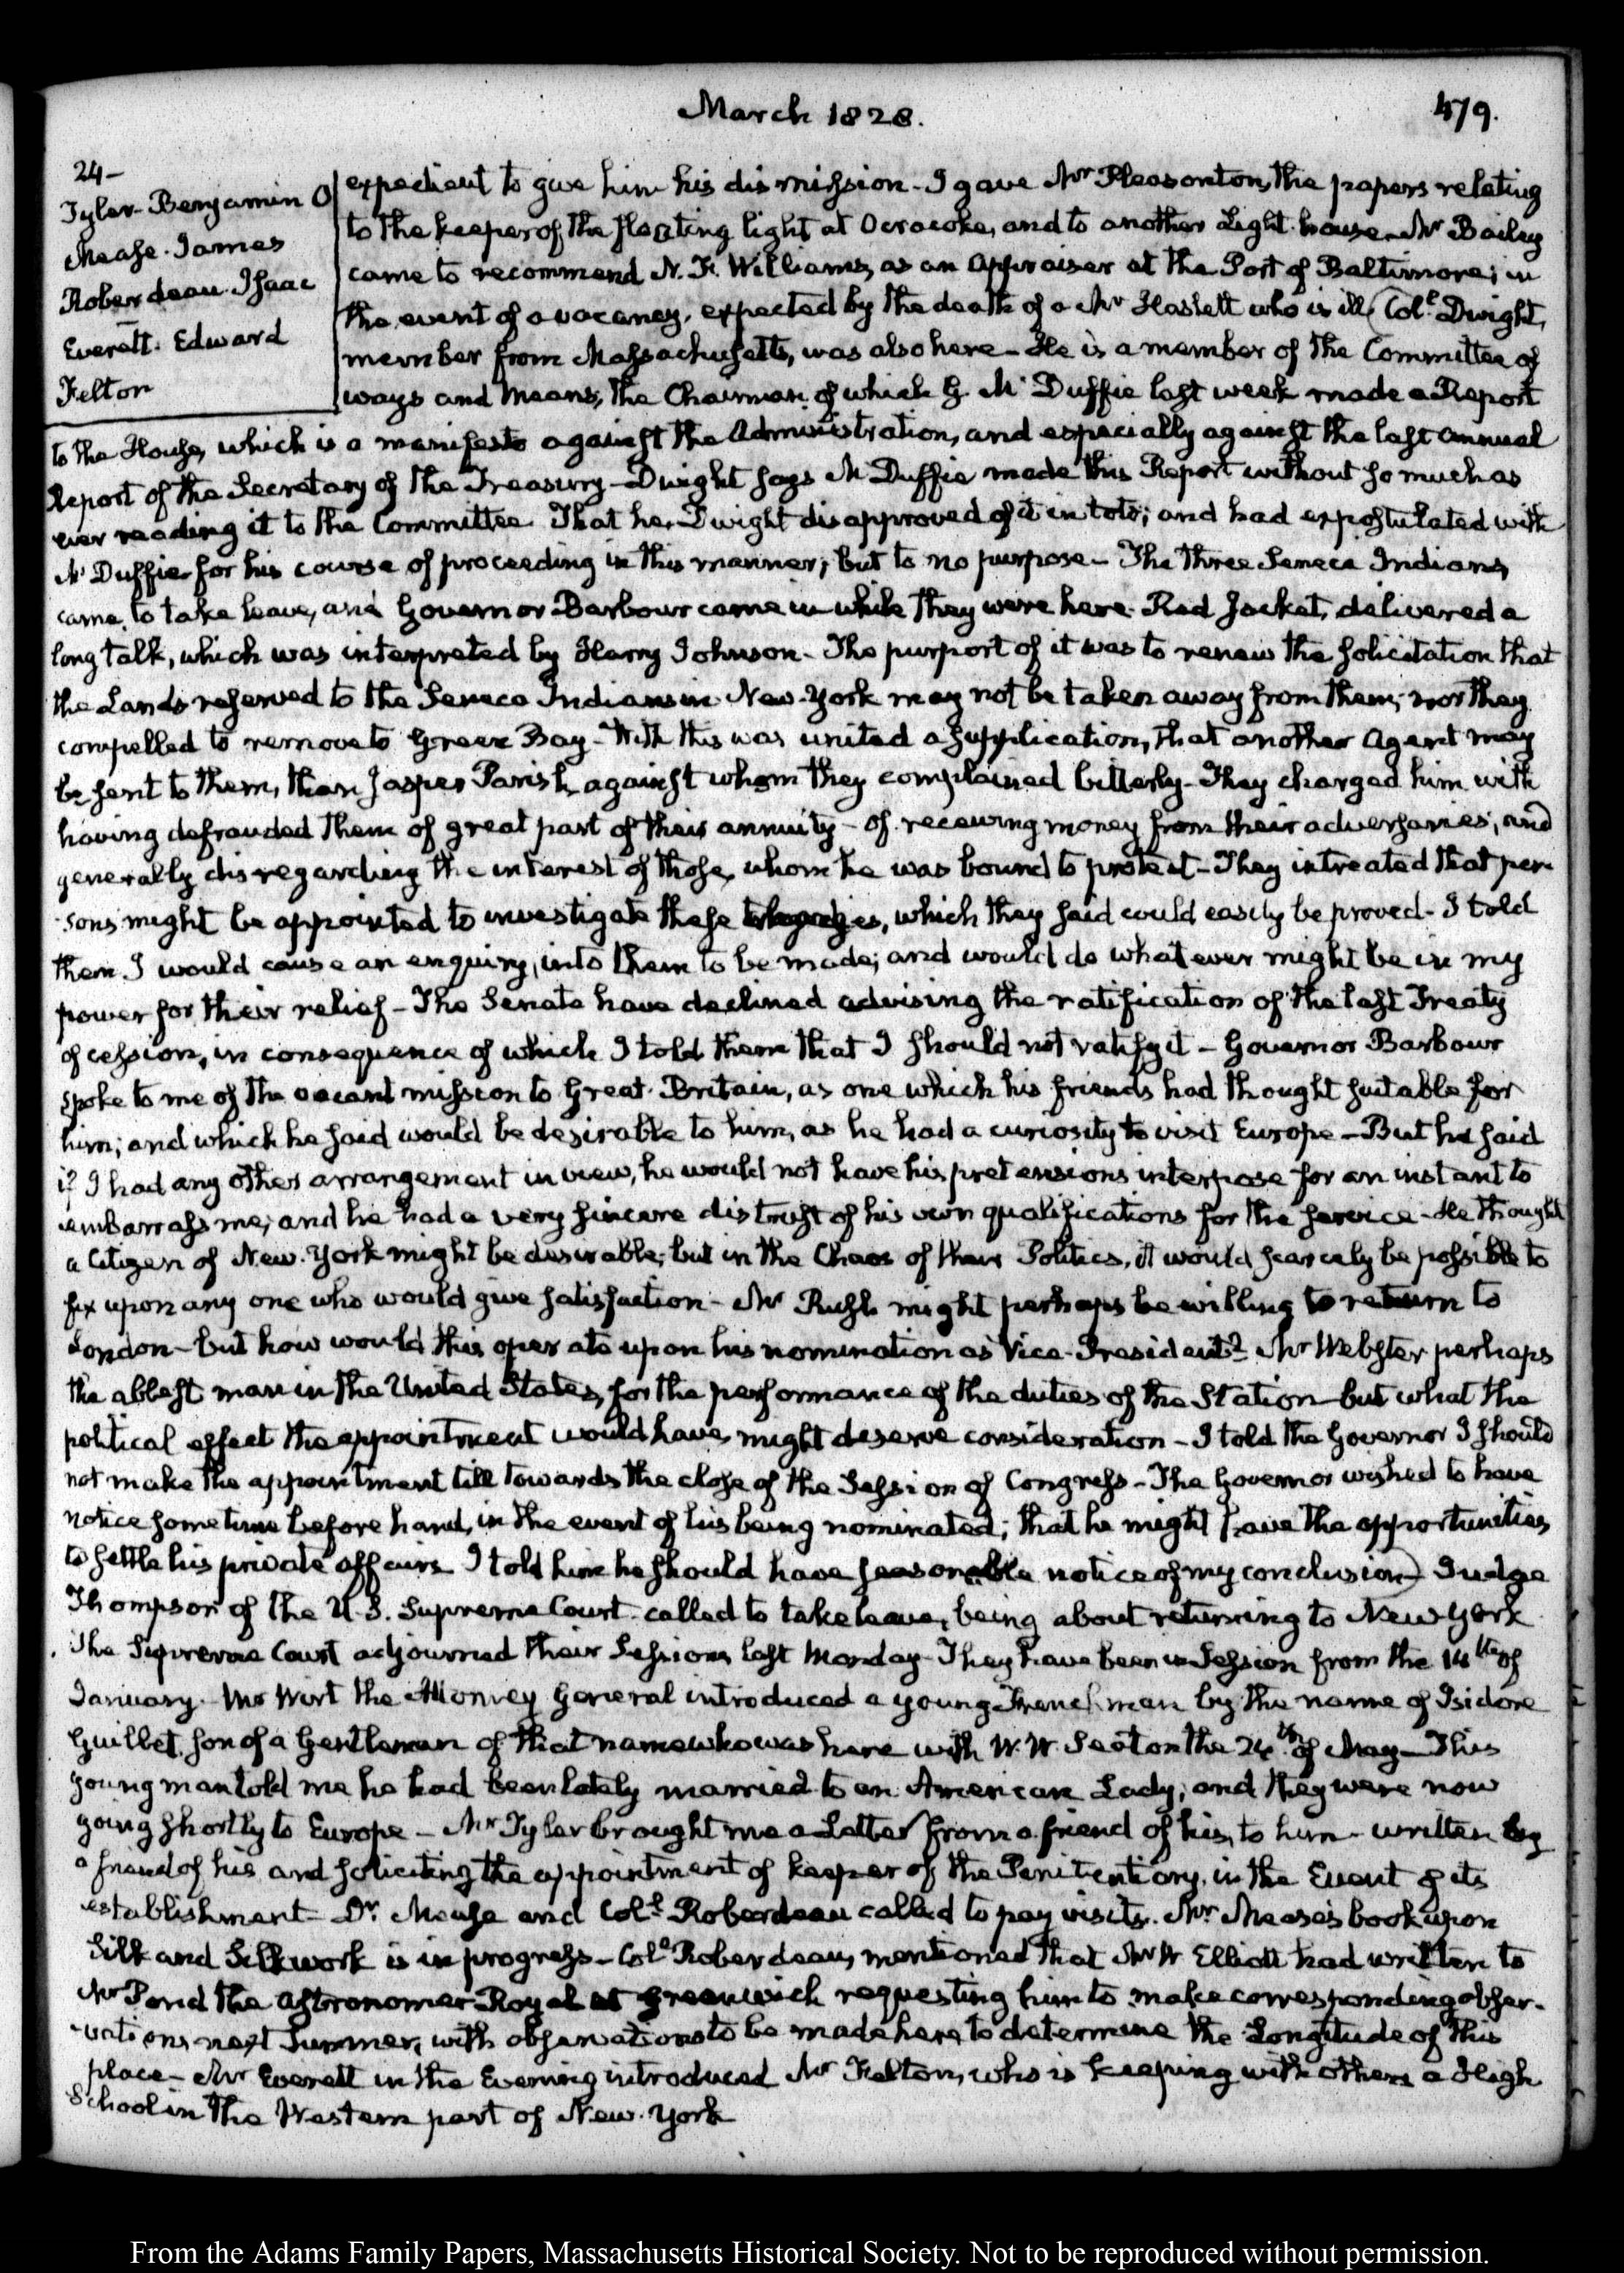 March 1828.
479.
24-
Tyler. Benjamin O
Mease. James
Roberdeau. Isaac
Everett. Edward
Felton
expedient to give him his dismission. I gave Mr Pleasonton, the papers relating
to the keeper of the floating light at Ocracoke, and to another Light-house. Mr Bailey
came to recommend N. F. Williams, as an Appraiser at the Port of Baltimore; in
the event of a vacancy, expected by the death of a Mr Haslett who is ill (Coll. Dwight,
member from Massachusetts, was also here. He is a member of the Committee of
ways and Means, the Chairman of which G. Mc Duffie last week made a Report
to the House, which is a manifesto against the Administration, and especially against the last annual
Report of the Secretary of the Treasury. Dwight says Mc Duffie made this Report without so much as
ever reading it to the Committee. That he, Dwight disapproved of it in toto; and had expostulated with
Mc Duffie for his course of proceeding in this manner; but to no purpose. The three Seneca Indians,
came, to take leave, and Governor Barbour came in while they were here. Red Jacket, delivered a
long talk, which was interpreted by Harry Johnson. The purport of it was to renew the solicitation that
the Lands reserved to the Seneca Indians in New-York may not be taken away from them; nor they
compelled to remove to Green Bay. With this was united a supplication, that another Agent may
be sent to them, than Jasper Parish, against whom they complained bitterly. They charged him with
having defrauded them of great part of their annuity - of receiving money from their adversaries, and
generally disregarding the interest of those, whom he was bound to protect. They intreated that per-
sons might be appointed to investigate these charges, which they said could easily be proved. I told
them I would cause an enquiry, into them to be made; and would do whatever might be in my
power for their relief. The Senate have declined advising the ratification of the last Treaty
of cession, in consequence of which I told them that I should not ratify it. Governor Barbour
spoke to me of the vacant mission to Great-Britain, as one which his friends had thought suitable for
him; and which he said would be desirable to him, as he had a curiosity to visit Europe. But he said
if I had any other arrangement in view, he would not have his pretensions interpose for an instant to
embarrass me; and he had a very sincere distrust of his own qualifications for the service. He thought
a Citizen of New-York might be desirable; but in the Chaos of their Politics, it would scarcely be possible to
fix upon any one who would give satisfaction. Mr Rush might perhaps be willing to return to
London - but how would this operate upon his nomination as Vice-President? Mr Webster perhaps
the ablest man in the United States, for the performance of the duties of the Station but what the
political effect the appointment would have, might deserve consideration. I told the Governor I should
not make the appointment till towards the close of the Session of Congress. The Governor wished to have
notice sometime before hand, in the event of his being nominated; that he might have the opportunities
to settle his private affairs. I told him he should have seasonable notice of my conclusion) Judge
Thompson of the U.S. Supreme Court called to take leave, being about returning to New York.
The Supreme Court adjourned their Sessions last Monday. They have been in Session from the 14th of
January. Mr Wirt the Attorney General introduced a young Frenchman by the name of Isidore
Guillet, son of a Gentleman of that name who was here with W. W. Seaton the 24th of May. This
young man told me he had been lately married to an American Lady; and they were now
going shortly to Europe. Mr Tyler brought me a Letter from a friend of his, to him - written by
a friend of his and soliciting the appointment of keeper of the Penitentiary, in the Event of its
establishment. Dr. Mease and Coll. Roberdeau called to pay visits. Mr. Mease's book upon
Silk and Silkwork is in progress. Coll. Roberdeau, mentioned that Mr W Elliott had written to
Mr Pond the Astronomer Royal at Greenwich requesting him to make corresponding obser-
vations next Summer, with observations to be made here, to determine the Longitude of this
place. Mr Everett in the Evening introduced Mr Felton, who is keeping with others a High
School in the Western part of New-York
From the Adams Family Papers, Massachusetts Historical Society. Not to be reproduced without permission.